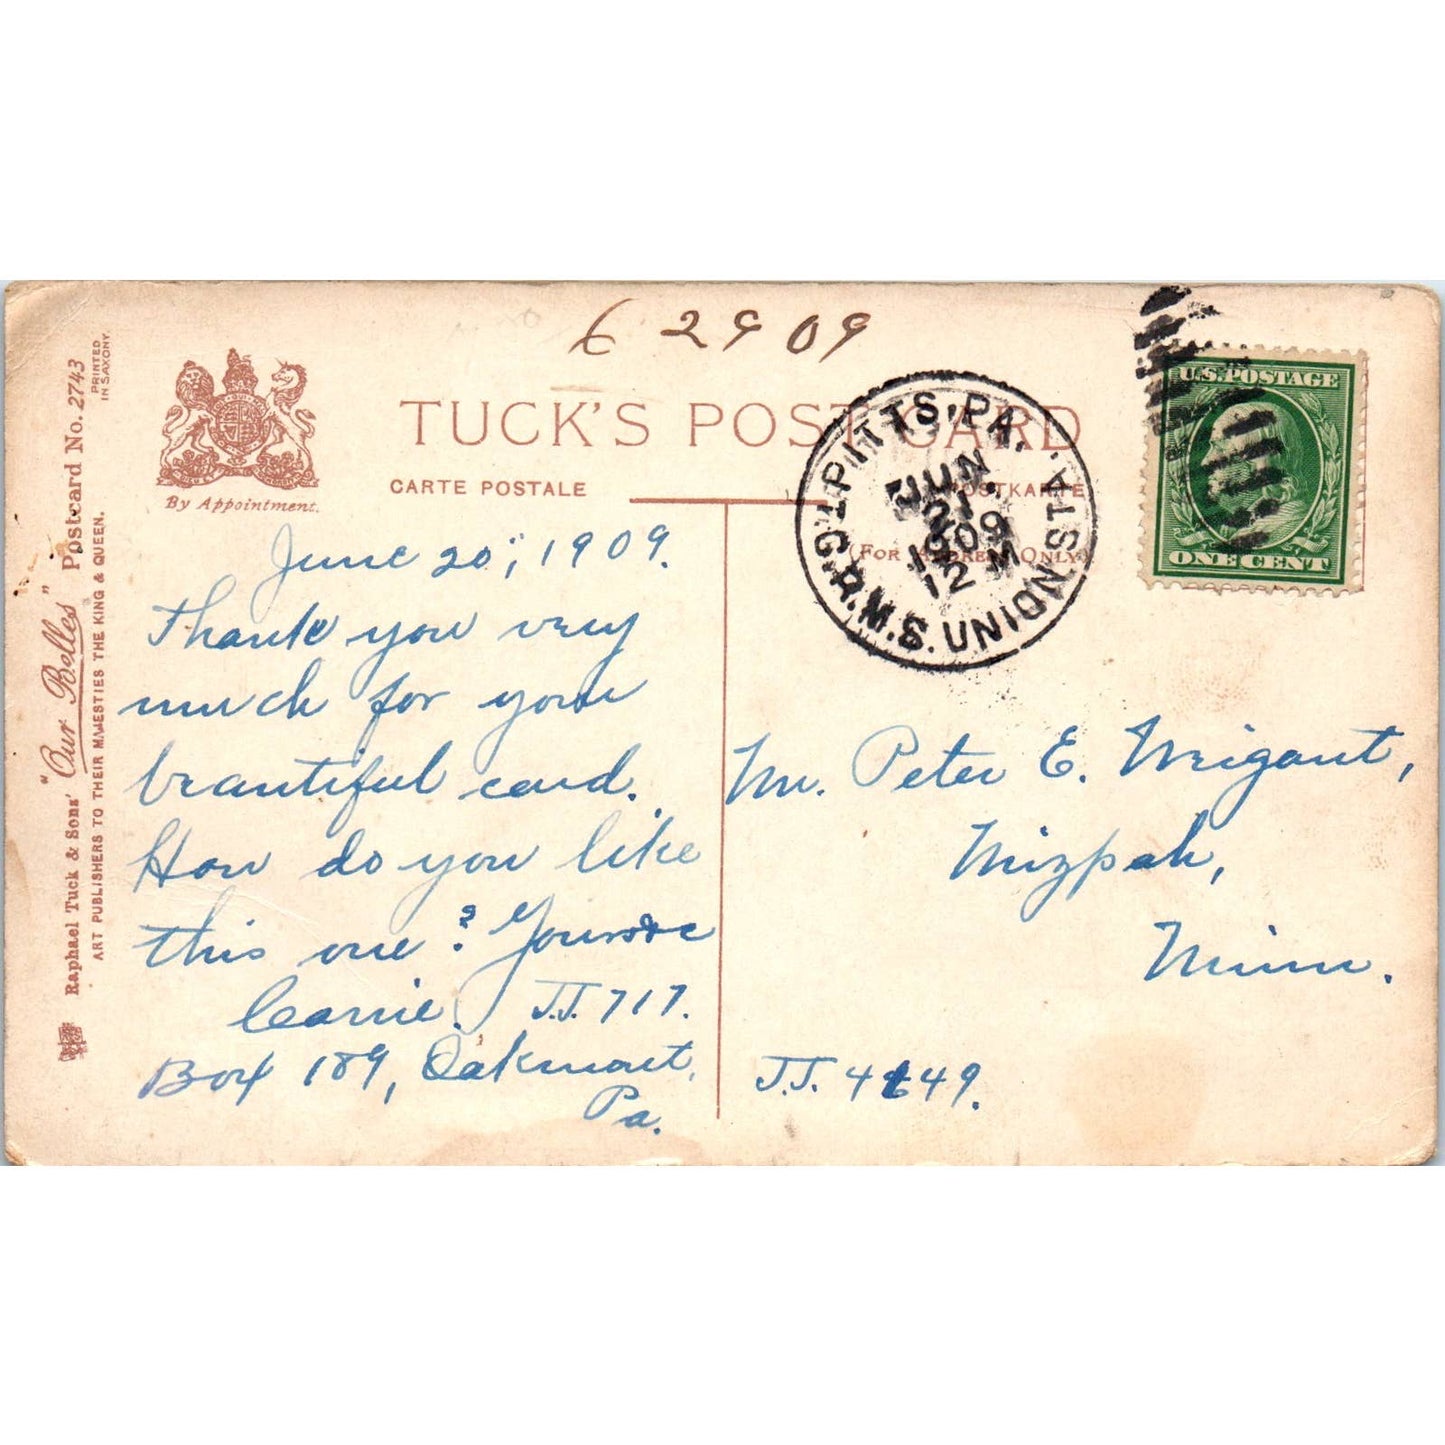 6 29 09
TUCK'S POST CARD
CARTE POSTALE
POSTKARTE
(FOR ADDRESS ONLY.)
By Appointment.
Raphael Tuck & Sons' "Our Belles" Postcard No. 2743
ART PUBLISHERS TO THEIR MAJESTIES THE KING & QUEEN.
PRINTED
IN SAXONY.
PITTS, PA. UNION STA.
R.M.S.
JUN
21
1909
12 M
U.S. POSTAGE
ONE CENT
June 20, 1909.
Thank you very
much for your
beautiful card.
How do you like
this one? Yours
Carrie. J.J. 717.
Box 189, Oakmont,
Pa.
Mr. Peter E. Wrigant,
Mizpah,
Minn.
J.J. 4649.